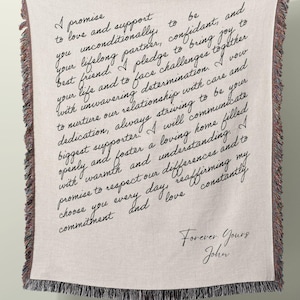 I promise
to love and support
you unconditionally, to be
your lifelong partner, confidant, and
best friend. I pledge to bring joy to
your life and to face challenges together
with unwavering determination. I vow
to nurture our relationship with care and
dedication, always striving to be your
biggest supporter. I will communicate
openly and foster a loving home filled
with warmth and understanding. I
promise to respect our differences and to
choose you every day, reaffirming my
commitment and love constantly.
Forever Yours
John